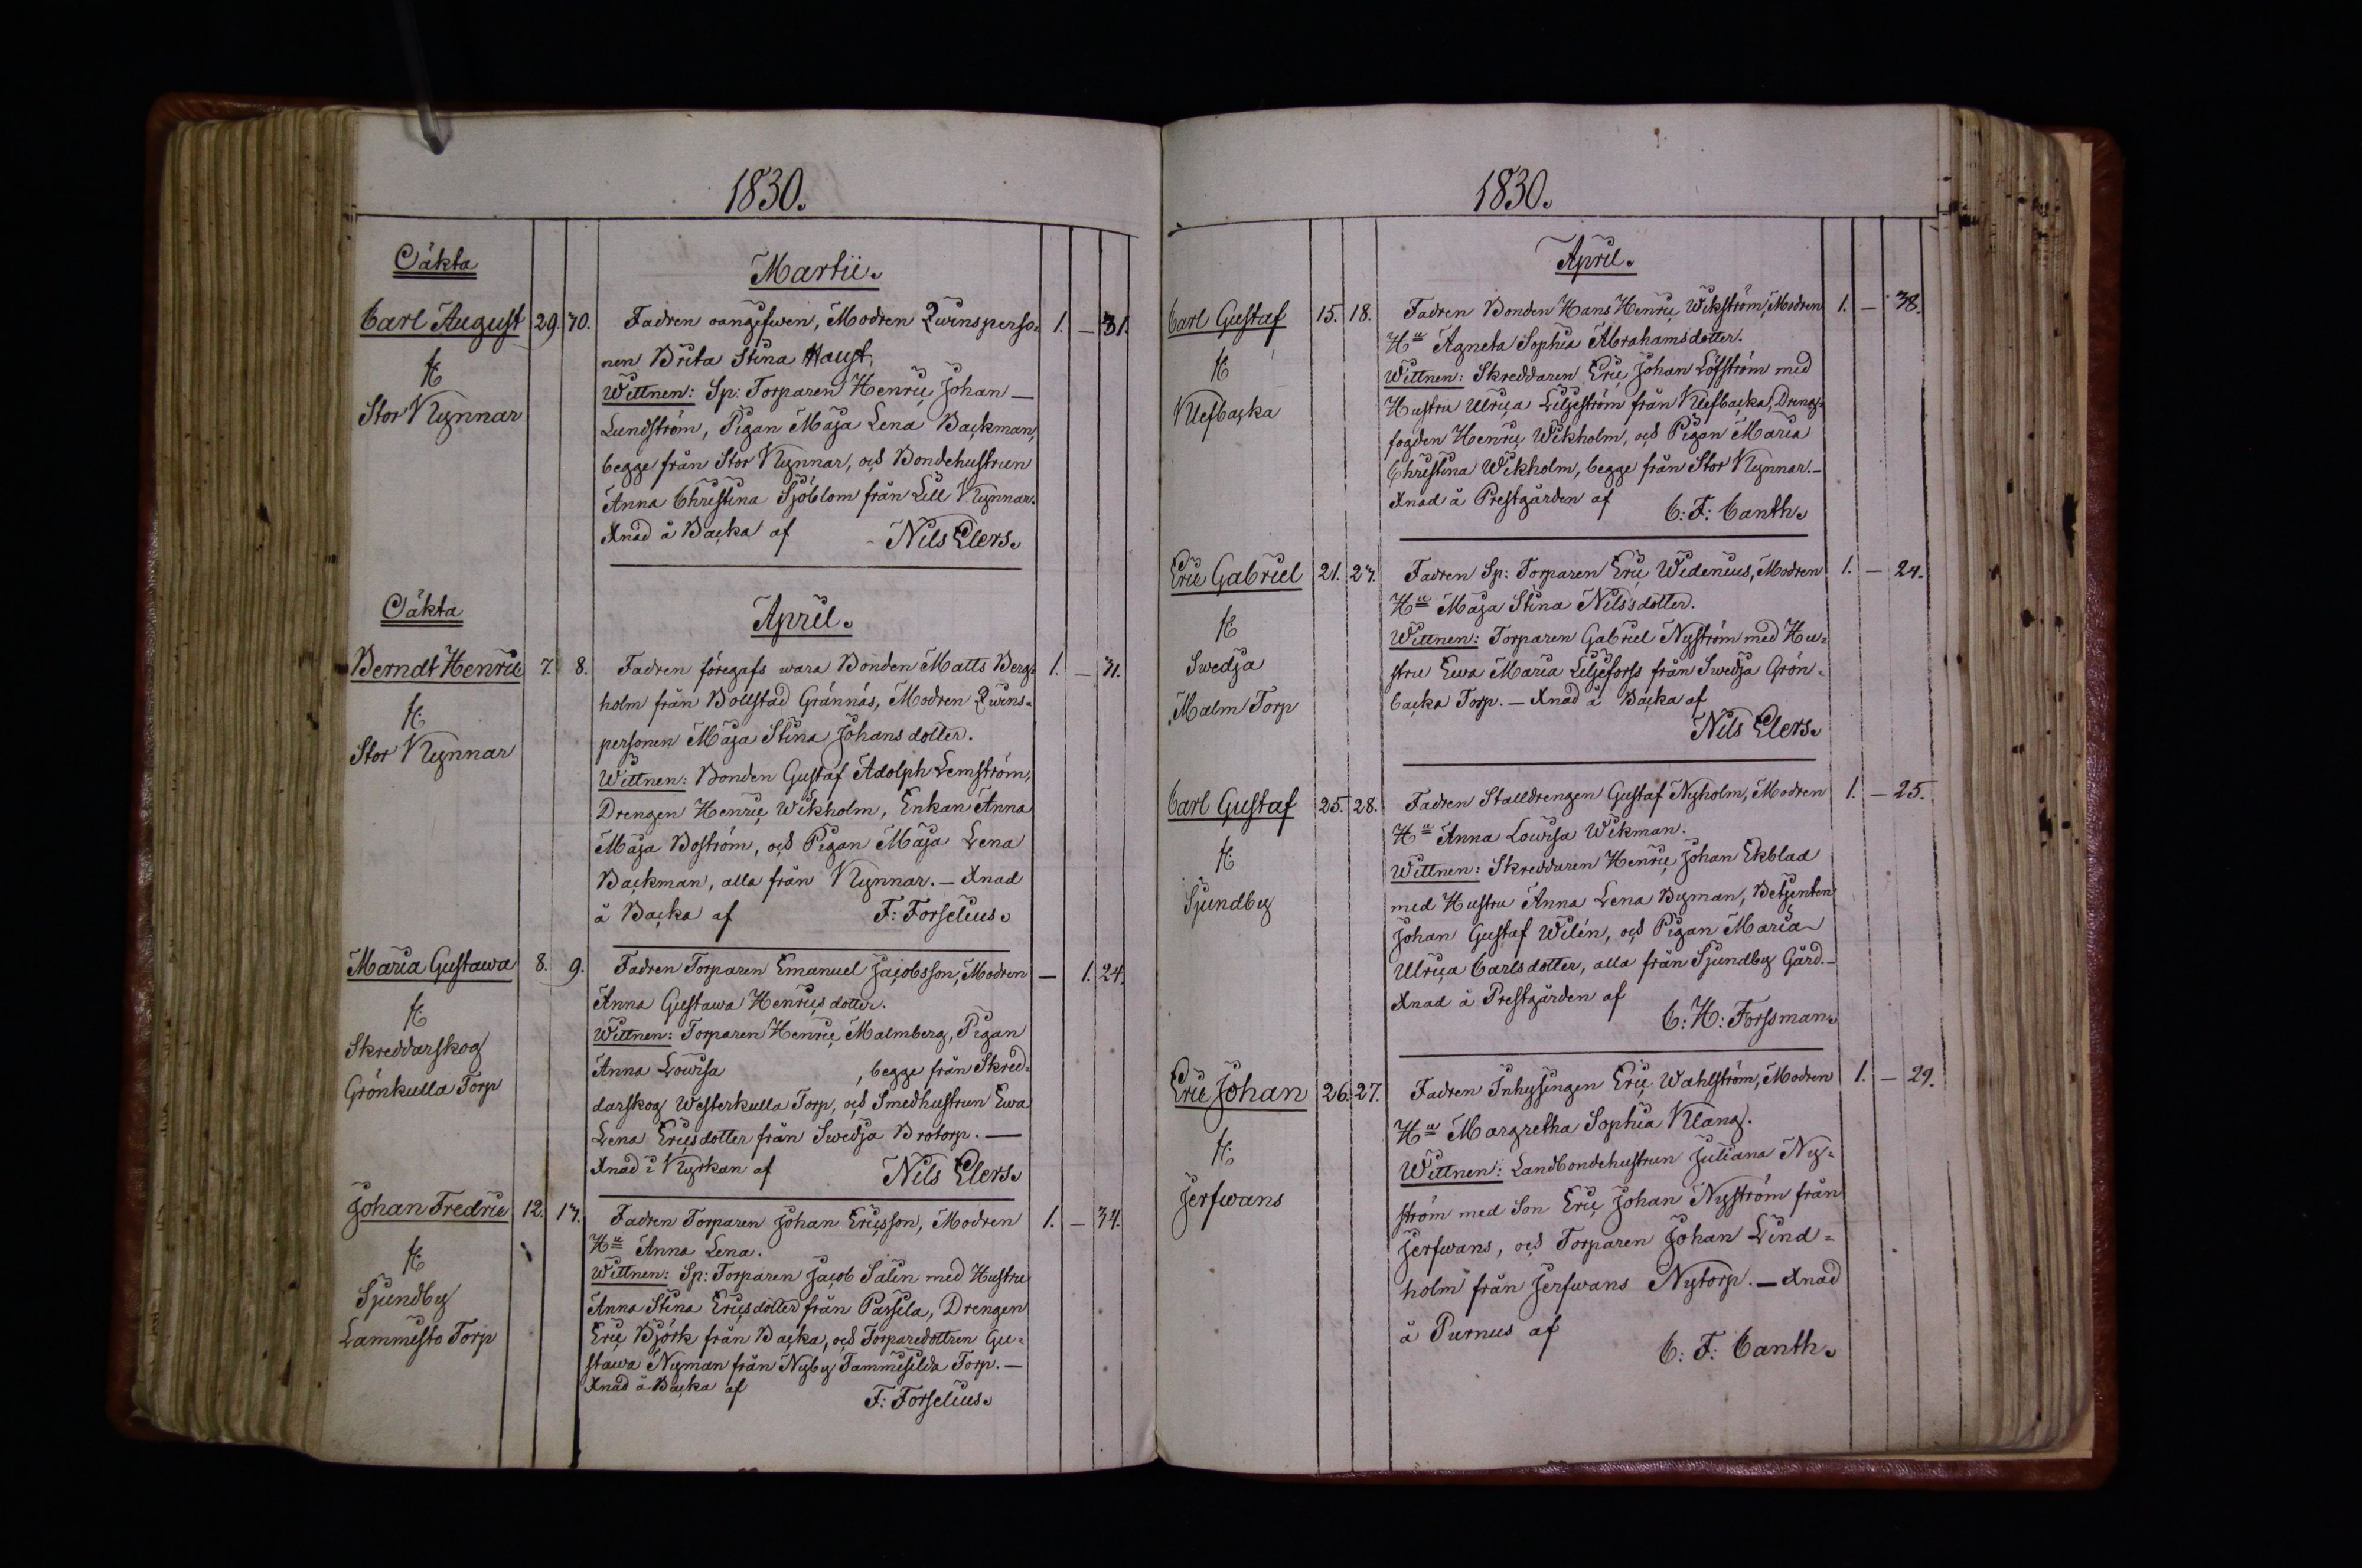 1830.
Oäkta
Martii.
Carl August 29. 30. Fadren oangifwen, Modren Qwinsperso= 1. — 31.
nen Brita Stina Haust
Wittnen: Sp: Torparen Henric Johan —
Stor Kynnar
Lundström, Pigan Maja Lena Backman,
begge från Stor Kynnar, och Bondehustrun
Anna Christina Sjöblom från Lill Kynnar.
Xnad å Backa af Nils Elers.
Oäkta
April.
Berndt Henric 7. 8. Fadren föregafs wara Bonden Matts Berg= 1. — 31.
holm från Bollstad Grännäs, Modren Qwins=
personen Maja Stina Johansdotter.
Stor Kynnar
Wittnen: Bonden Gustaf Adolph Lemström,
Drengen Henric Wikholm, Enkan Anna
Maja Boström, och Pigan Maja Lena
Backman, alla från Kynnar. — Xnad
å Backa af F: Forselius.
Maria Gustawa 8. 9. Fadren Torparen Emanuel Jacobsson, Modren — 1. 24.
Anna Gustawa Henricsdotter.
Skreddarskog
Wittnen: Torparen Henric Malmberg, Pigan
Grönkulla Torp
Anna Lowisa , begge från Skred=
darskog Westerkulla Torp, och Smedhustrun Ewa
Lena Ericsdotter från Swedja Brotorp. —
Xnad i Kyrkan af Nils Elers.
Johan Fredric 12. 13. Fadren Torparen Johan Ericsson, Modren 1. — 34.
Hu Anna Lena.
Wittnen: Sp: Torparen Jacob Salin med Hustru
Sjundby
Anna Stina Ericsdotter från Passila, Drengen
Lammisto Torp
Eric Björk från Backa, och Torparedottren Gu=
stawa Nyman från Nyby Tammisilda Torp. —
Xnad å Backa af F: Forselius.
1830.
April.
Carl Gustaf 15. 18. Fadren Bonden Hans Henric Wikström, Modren 1. — 38.
Hu Agneta Sophia Abrahamsdotter.
Wittnen: Skreddaren Eric Johan Löfström med
Klefbacka
Hustru Ulrica Liljeström från Klefbacka, Drengs=
fogden Henric Wikholm, och Pigan Maria
Christina Wikholm, begge från Stor Kynnar. —
Xnad å Prestgården af C: F: Canth.
Eric Gabriel 21. 23. Fadren Sp: Torparen Eric Widenius, Modren 1. — 24.
Hu Maja Stina Nilsdotter.
Wittnen: Torparen Gabriel Nyström med Hu=
Swedja
stru Ewa Maria Liljeforss från Swedja Grön=
Malm Torp
backa Torp. — Xnad å Backa af
Nils Elers.
Carl Gustaf 25. 28. Fadren Stalldrengen Gustaf Nyholm, Modren 1. — 25.
Hu Anna Lowisa Wikman.
Wittnen: Skreddaren Henric Johan Ekblad
Sjundby
med Hustru Anna Lena Byman, Betjenten
Johan Gustaf Wilén, och Pigan Maria
Ulrica Carlsdotter, alla från Sjundby Gård. —
Xnad å Prestgården af
C: H: Forssman.
Eric Johan 26. 27. Fadren Inhysingen Eric Wahlström, Modren 1. — 29.
Hu Margretha Sophia Klang.
Wittnen: Landbondehustrun Juliana Ny=
Jerfwans
ström med Son Eric Johan Nyström från
Jerfwans, och Torparen Johan Lind=
holm från Jerfwans Nytorp. — Xnad
å Purnus af
C: F: Canth.